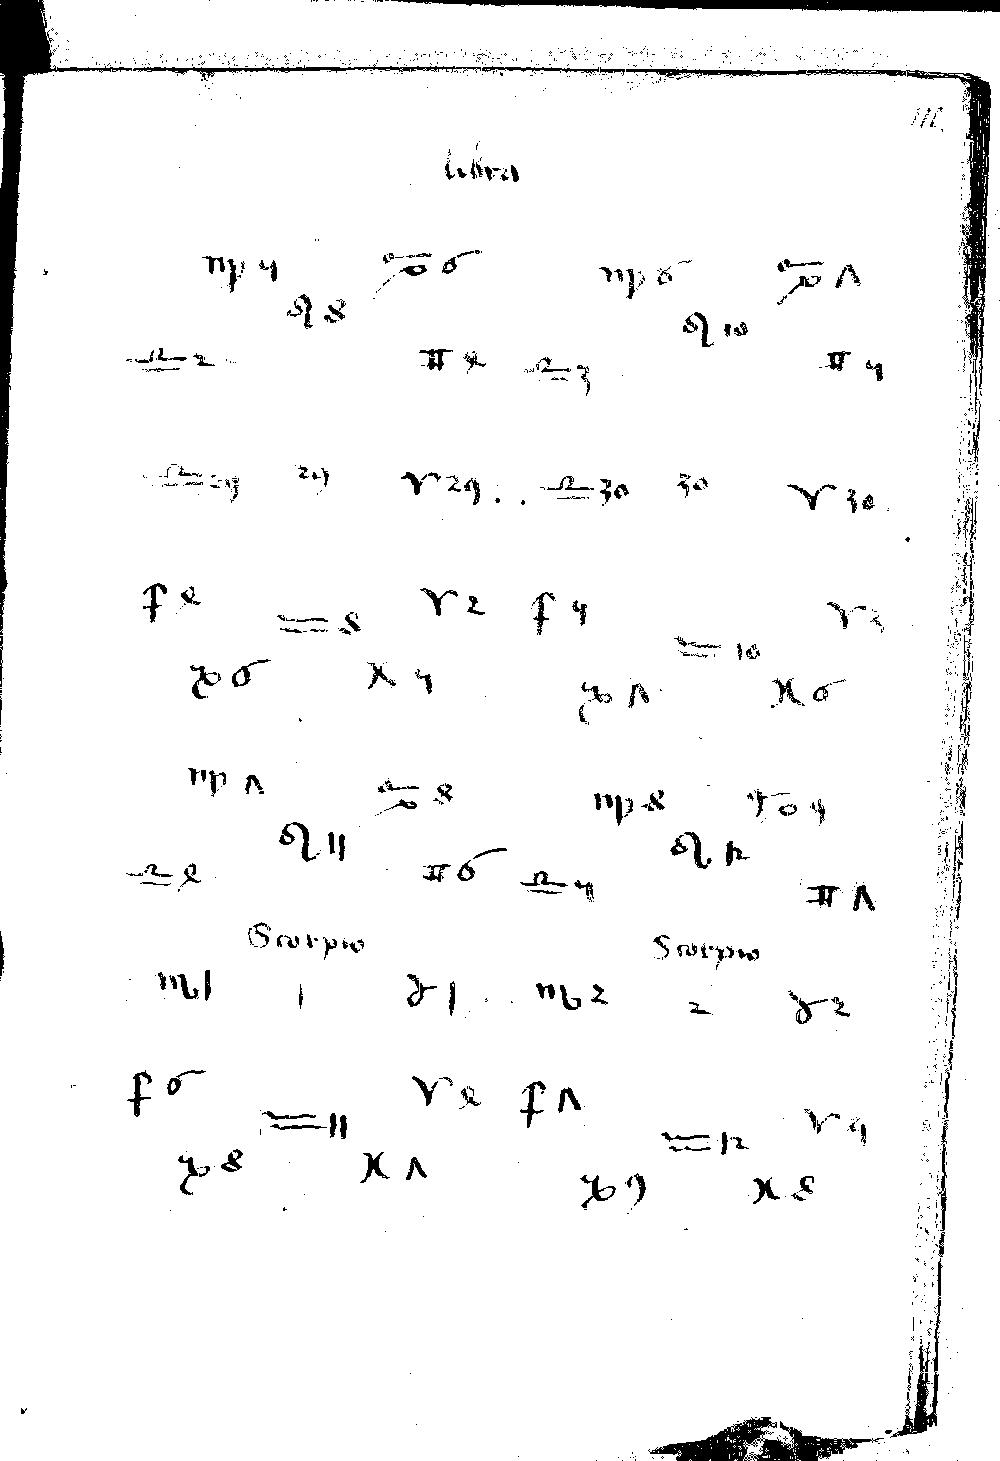 111
libra
♍ 5 ♋ 6 ♍ 6 ♋ 7
♌ 8 ♌ 10
♎ 2 ♊ 4 ♎ 3 ♊ 5
♎ 29 29 ♈ 29 ♎ 30 30 ♈ 30
♐ 4 ♒ 8 ♈ 2 ♐ 5 ♒ 10 ♈ 3
♑ 6 ♓ 5 ♑ 7 ♓ 6
♍ 7 ♋ 8 ♍ 8 ♋ 9
♌ 11 ♌ 12
♎ 4 ♊ 6 ♎ 5 ♊ 7
Scorpio Scorpio
♏ 1 1 ♉ 1 ♏ 2 2 ♉ 2
♐ 6 ♒ 11 ♈ 4 ♐ 7 ♒ 12 ♈ 5
♑ 8 ♓ 7 ♑ 9 ♓ 8